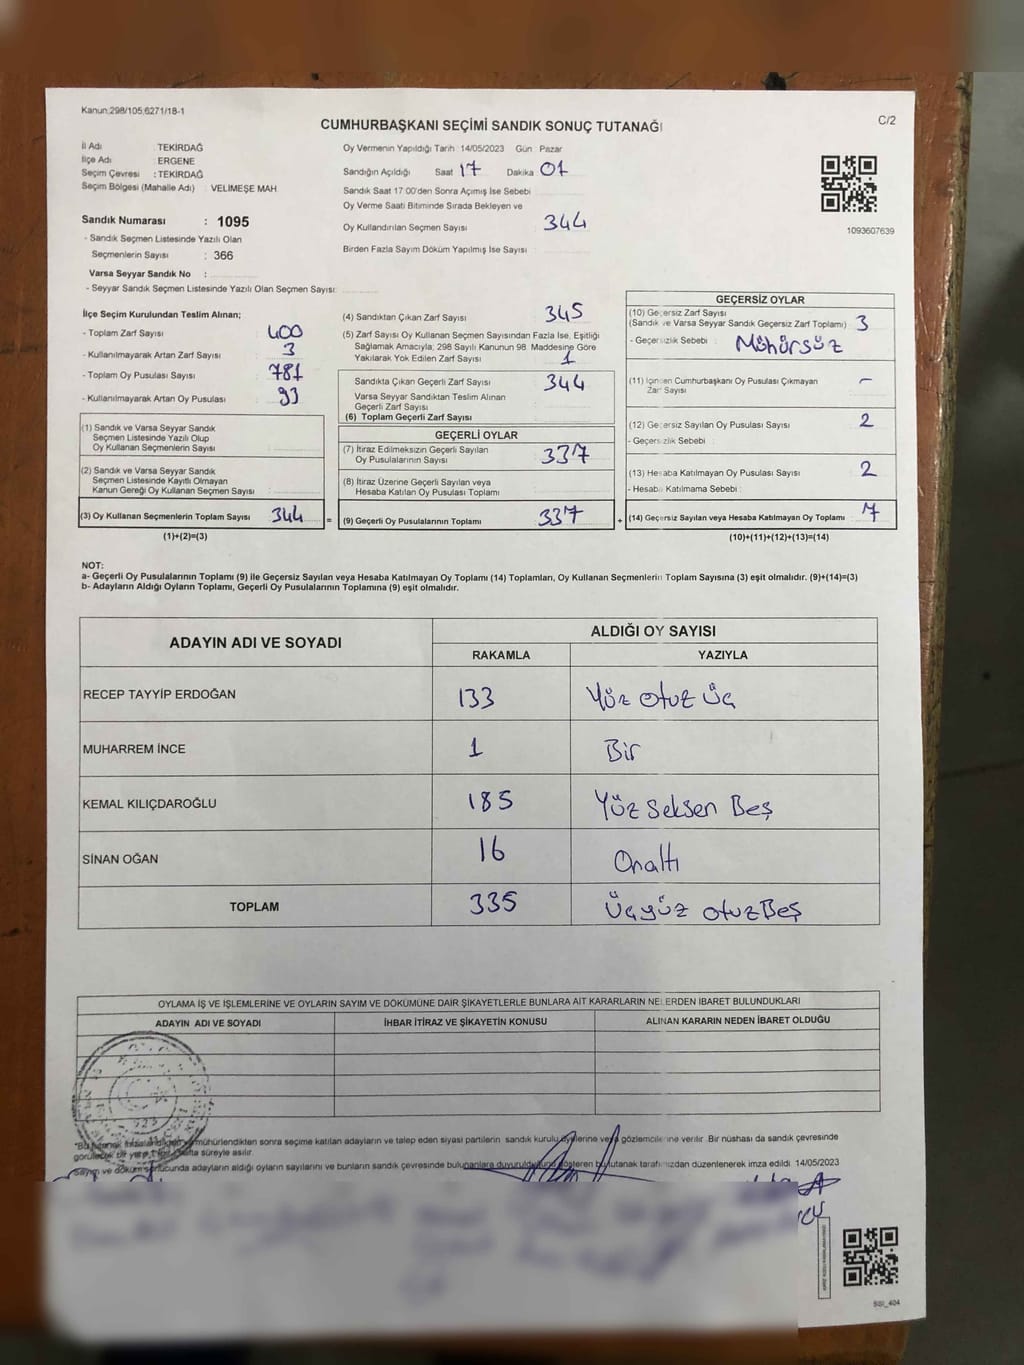 Kanun:298/105,6271/18-1
C/2
CUMHURBAŞKANI SEÇİMİ SANDIK SONUÇ TUTANAĞI
İl Adı : TEKİRDAĞ
İlçe Adı : ERGENE
Seçim Çevresi : TEKİRDAĞ
Seçim Bölgesi (Mahalle Adı) : VELİMEŞE MAH
Sandık Numarası : 1095
- Sandık Seçmen Listesinde Yazılı Olan
Seçmenlerin Sayısı : 366
Varsa Seyyar Sandık No :
- Seyyar Sandık Seçmen Listesinde Yazılı Olan Seçmen Sayısı:
Oy Vermenin Yapıldığı Tarih : 14/05/2023 Gün : Pazar
Sandığın Açıldığı Saat 17 Dakika 01
Sandık Saat 17:00'den Sonra Açımış İse Sebebi
Oy Verme Saati Bitiminde Sırada Bekleyen ve
Oy Kullandırılan Seçmen Sayısı 344
Birden Fazla Sayım Döküm Yapılmış İse Sayısı
1093607639
İlçe Seçim Kurulundan Teslim Alınan;
- Toplam Zarf Sayısı 400
- Kullanılmayarak Artan Zarf Sayısı 3
- Toplam Oy Pusulası Sayısı 781
- Kullanılmayarak Artan Oy Pusulası 93
(1) Sandık ve Varsa Seyyar Sandık
Seçmen Listesinde Yazılı Olup
Oy Kullanan Seçmenlerin Sayısı
(2) Sandık ve Varsa Seyyar Sandık
Seçmen Listesinde Kayıtlı Olmayan
Kanun Gereği Oy Kullanan Seçmen Sayısı
(3) Oy Kullanan Seçmenlerin Toplam Sayısı 344 =
(1)+(2)=(3)
(4) Sandıktan Çıkan Zarf Sayısı 345
(5) Zarf Sayısı Oy Kullanan Seçmen Sayısından Fazla İse, Eşitliği
Sağlamak Amacıyla; 298 Sayılı Kanunun 98. Maddesine Göre
Yakılarak Yok Edilen Zarf Sayısı 1
Sandıkta Çıkan Geçerli Zarf Sayısı 344
Varsa Seyyar Sandıktan Teslim Alınan
Geçerli Zarf Sayısı
(6) Toplam Geçerli Zarf Sayısı
GEÇERLİ OYLAR
(7) İtiraz Edilmeksizin Geçerli Sayılan
Oy Pusulalarının Sayısı 337
(8) İtiraz Üzerine Geçerli Sayılan veya
Hesaba Katılan Oy Pusulası Toplamı
(9) Geçerli Oy Pusulalarının Toplamı 337 +
GEÇERSİZ OYLAR
(10) Geçersiz Zarf Sayısı
(Sandık ve Varsa Seyyar Sandık Geçersiz Zarf Toplamı) 3
- Geçersizlik Sebebi Mühürsüz
(11) İçinden Cumhurbaşkanı Oy Pusulası Çıkmayan
Zarf Sayısı -
(12) Geçersiz Sayılan Oy Pusulası Sayısı 2
- Geçersizlik Sebebi
(13) Hesaba Katılmayan Oy Pusulası Sayısı 2
- Hesaba Katılmama Sebebi
(14) Geçersiz Sayılan veya Hesaba Katılmayan Oy Toplamı 7
(10)+(11)+(12)+(13)=(14)
NOT:
a- Geçerli Oy Pusulalarının Toplamı (9) ile Geçersiz Sayılan veya Hesaba Katılmayan Oy Toplamı (14) Toplamları, Oy Kullanan Seçmenlerin Toplam Sayısına (3) eşit olmalıdır. (9)+(14)=(3)
b- Adayların Aldığı Oyların Toplamı, Geçerli Oy Pusulalarının Toplamına (9) eşit olmalıdır.
ADAYIN ADI VE SOYADI ALDIĞI OY SAYISI
RAKAMLA YAZIYLA
RECEP TAYYİP ERDOĞAN 133 Yüz otuz üç
MUHARREM İNCE 1 Bir
KEMAL KILIÇDAROĞLU 185 Yüz Seksen Beş
SİNAN OĞAN 16 Onaltı
TOPLAM 335 Üçyüz otuzBeş
OYLAMA İŞ VE İŞLEMLERİNE VE OYLARIN SAYIM VE DÖKÜMÜNE DAİR ŞİKAYETLERLE BUNLARA AİT KARARLARIN NELERDEN İBARET BULUNDUKLARI
ADAYIN ADI VE SOYADI İHBAR İTİRAZ VE ŞİKAYETİN KONUSU ALINAN KARARIN NEDEN İBARET OLDUĞU
mühürlendikten sonra seçime katılan adayların ve talep eden siyasi partilerin sandık kurulu üyelerine veya gözlemcilerine verilir. Bir nüshası da sandık çevresinde
görülecek bir yere 1 hafta süreyle asılır.
Sayım ve döküm sonucunda adayların aldığı oyların sayılarını ve bunların sandık çevresinde bulunanlara duyurulduğunu gösteren bu tutanak tarafımızdan düzenlenerek imza edildi. 14/05/2023
SSI_404